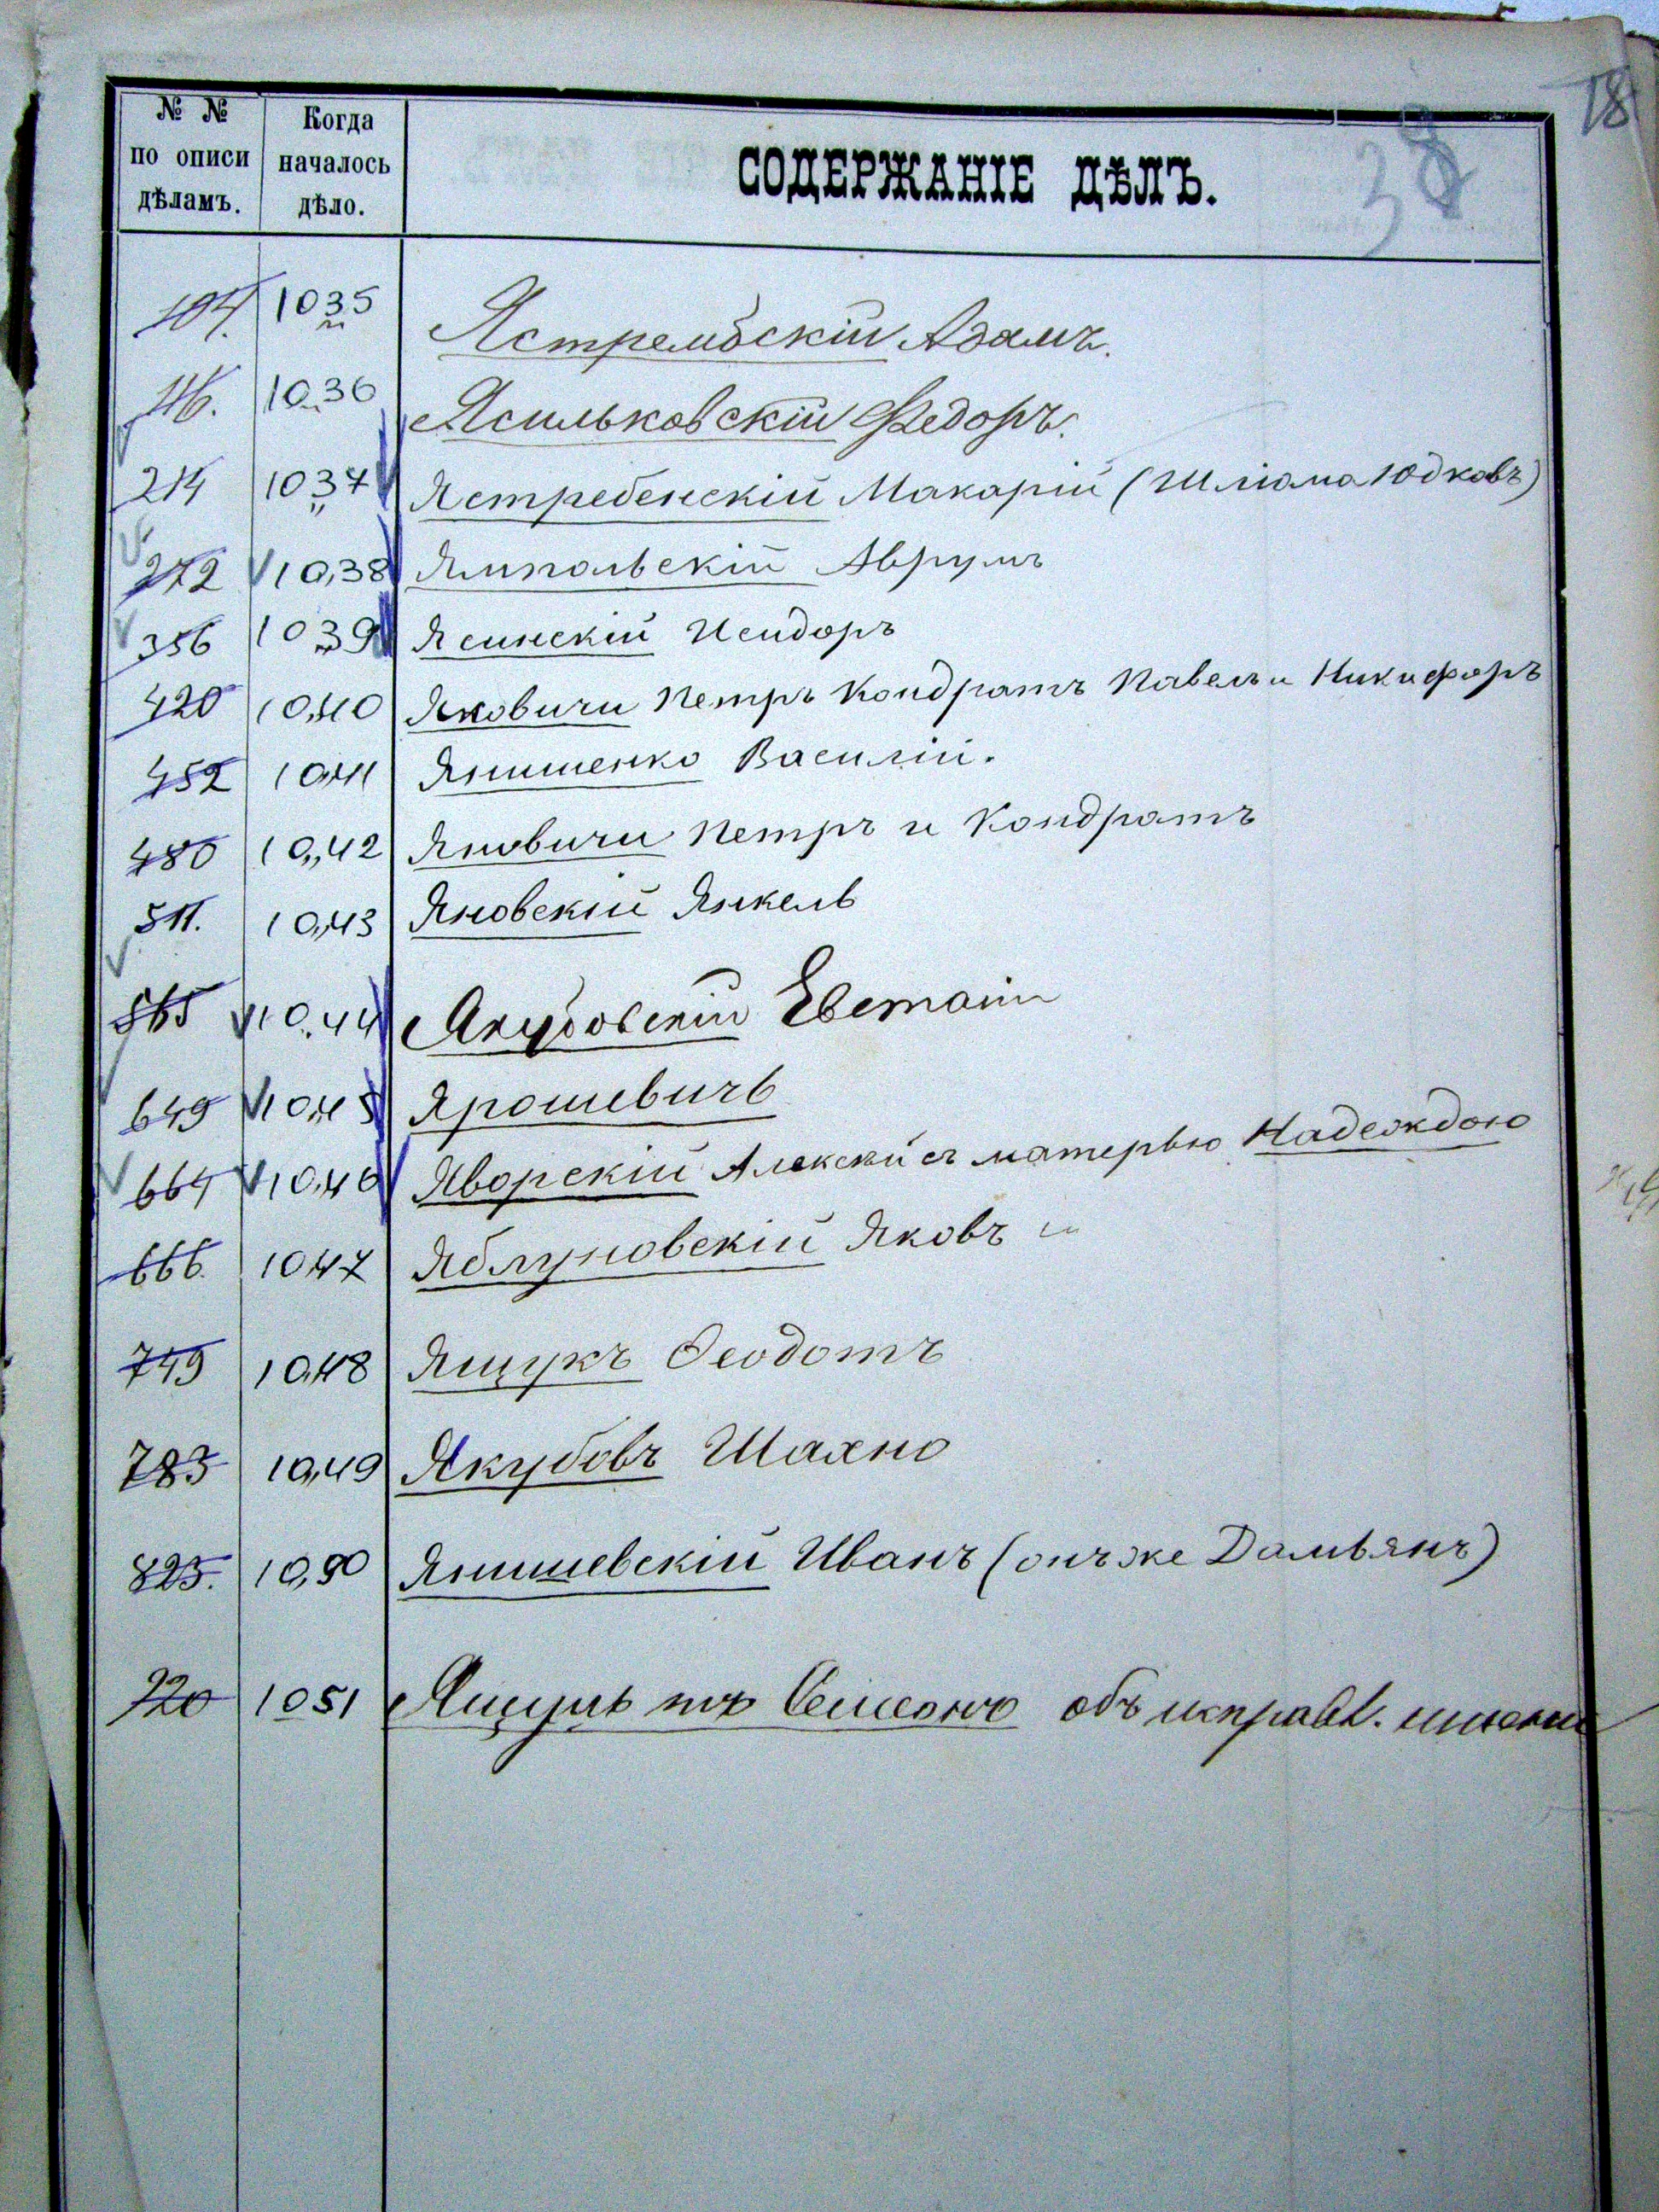 18
38
№ №
по описи
дѣламъ.
Когда
началось
дѣло.
СОДЕРЖАНІЕ ДѢЛЪ.
104. 1035 Ястрембскій Адамъ.
116. 1036 Ясильковскій Ѳедоръ.
214 1037 Ястребенскій Макарій (Шліома Юдковъ)
272 1038 Ямпольскій Аврумъ
356 1039 Ясинскій Исидоръ
420 1040 Яковичи Петръ Кондратъ Павелъ и Никифоръ
452 1041 Янишенко Василій.
480 1042 Яновичи Петръ и Кондратъ
511. 1043 Яновскій Янкель
565 1044 Якубовскій Евстафій
649 1045 Ярошевичъ
664 1046 Яворскій Алексѣй съ матерью Надеждою
666. 1047 Яблуновскій Яковъ и
749 1048 Ящукъ Ѳеодотъ
783 1049 Якубовъ Шахно
825. 1050 Янишевскій Иванъ (онъ же Дамьянъ)
920 1051 объ исправл. имени